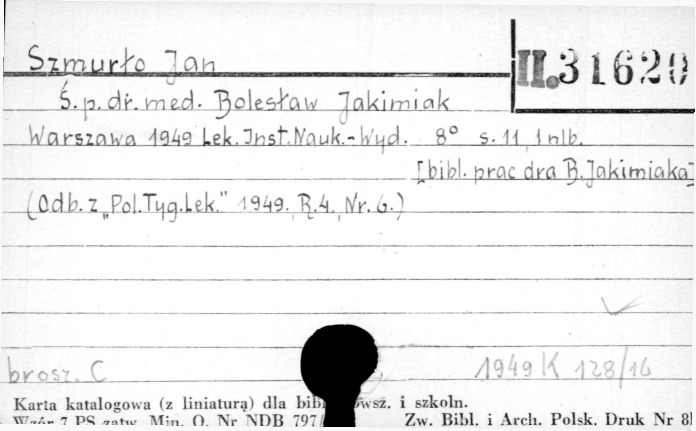 Szmurło Jan
II. 31620
Ś.p. dr. med. Bolesław Jakimiak
Warszawa 1949 Lek. Inst. Nauk.-Wyd. 8° s. 11, 1 nlb.
[bibl. prac dra B. Jakimiaka]
(Odb. z „Pol. Tyg. Lek." 1949. R. 4. Nr. 6.)
brosz. C 1949 K 128/16
Karta katalogowa (z liniaturą) dla bibl wsz. i szkoln.
Wzór 7 PS zatw. Min. O. Nr NDB 797/ Zw. Bibl. i Arch. Polsk. Druk Nr 8